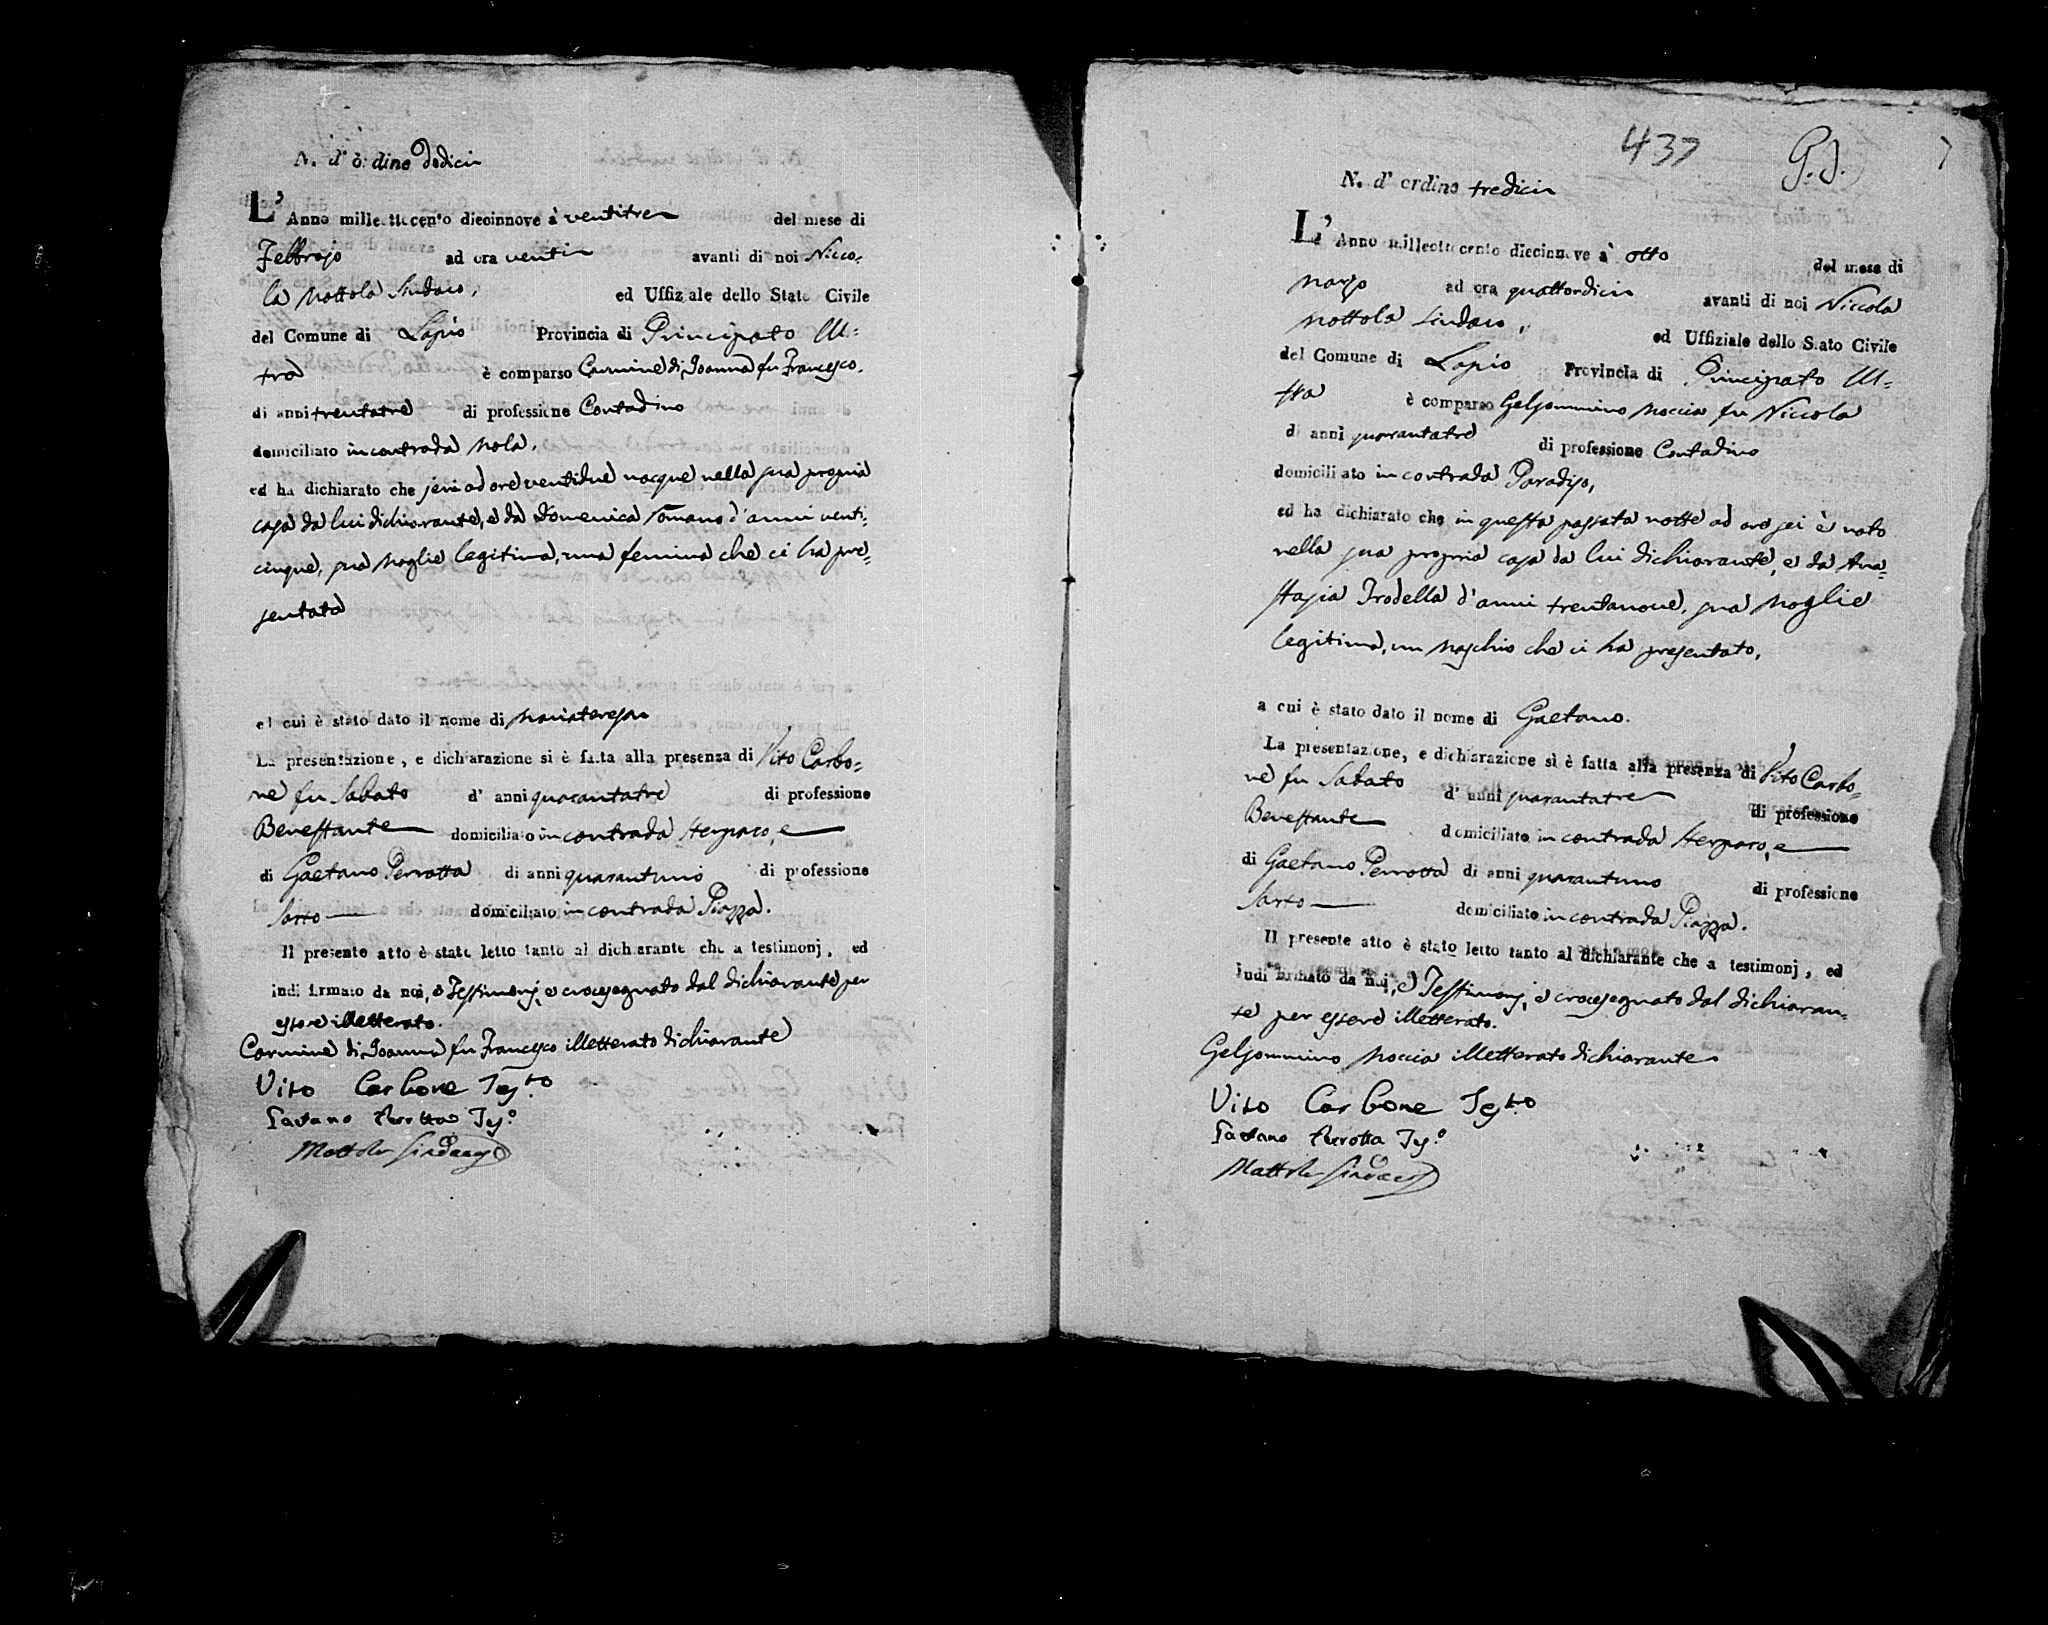 N. d'ordine dodici
L'Anno milleottocento diecinnove à ventitre del mese di
Febbrajo ad ora venti avanti di noi Nicco-
la Mottola Sindaco, ed Uffiziale dello Stato Civile
del Comune di Lapio Provincia di Principato Ul-
tra è comparso Carmine di Joanna fu Francesco,
di anni trentatre di professione Contadino
domiciliato in contrada Nola,
ed ha dichiarato che jeri ad ore ventidue nacque nella sua propria
casa da lui dichiarante, e da Domenica Romano d'anni venti-
cinque, sua Moglie legitima, una femina che ci ha pre-
sentata
ed cui è stato dato il nome di Mariateresa
La presentazione, e dichiarazione si è fatta alla presenza di Vito Carbo-
ne fu Sabato d' anni quarantatre di professione
Benestante domiciliato in contrada e
di Gaetano Perrotta di anni quarantuno di professione
Sarto domiciliato in contrada Piazza.
Il presente atto è stato letto tanto al dichiarante che a testimonj, ed
indi firmato da noi, e Testimonj, e crocesegnato dal dichiarante per
essere illetterato.
Carmine di Joanna fu Francesco illetterato dichiarante
Vito Carbone Testo
Gaetano Perrotta Teso
Mottola Sindaco
437 G. J.
N. d'ordine tredici
L'Anno milleottocento diecinnove à otto del mese di
Marzo ad ora quattordici avanti di noi Niccola
Mottola Sindaco, ed Uffiziale dello Stato Civile
del Comune di Lapio Provincia di Principato Ul-
tra è comparso Gelsommino Moccia fu Niccola
di anni quarantatre di professione Contadino
domiciliato in contrada Paradiso,
ed ha dichiarato che in questa passata notte ad ore sei è nato
nella sua propria casa da lui dichiarante, e da Ana-
stasia Trodella d'anni trentanove, sua Moglie
legitima, un Maschio che ci ha presentato,
a cui è stato dato il nome di Gaetano.
La presentazione, e dichiarazione si è fatta alla presenza di Vito Carbo-
ne fu Sabato d' anni quarantatre di professione
Benestante domiciliato in contrada e
di Gaetano Perrotta di anni quarantuno di professione
Sarto domiciliato in contrada Piazza.
Il presente atto è stato letto tanto al dichiarante che a testimonj, ed
indi firmato da noi, e Testimonj, e crocesegnato dal dichiaran-
te per essere illetterato.
Gelsommino Moccia illetterato dichiarante
Vito Carbone Testo
Gaetano Perrotta Teso
Mottola Sindaco